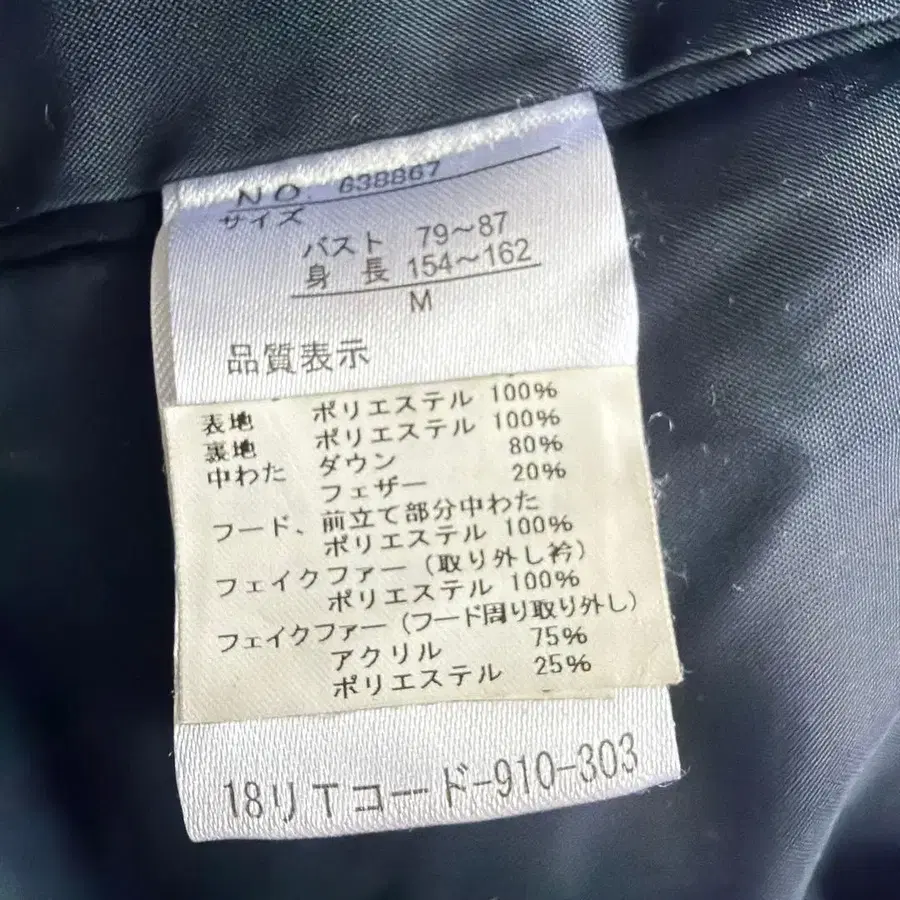 NO. 638867
サイズ
バスト 79～87
身長 154～162
M
品質表示
表地 ポリエステル 100%
裏地 ポリエステル 100%
中わた ダウン 80%
フェザー 20%
フード、前立て部分中わた
ポリエステル 100%
フェイクファー(取り外し衿)
ポリエステル 100%
フェイクファー(フード周り取り外し)
アクリル 75%
ポリエステル 25%
18リTコード-910-303